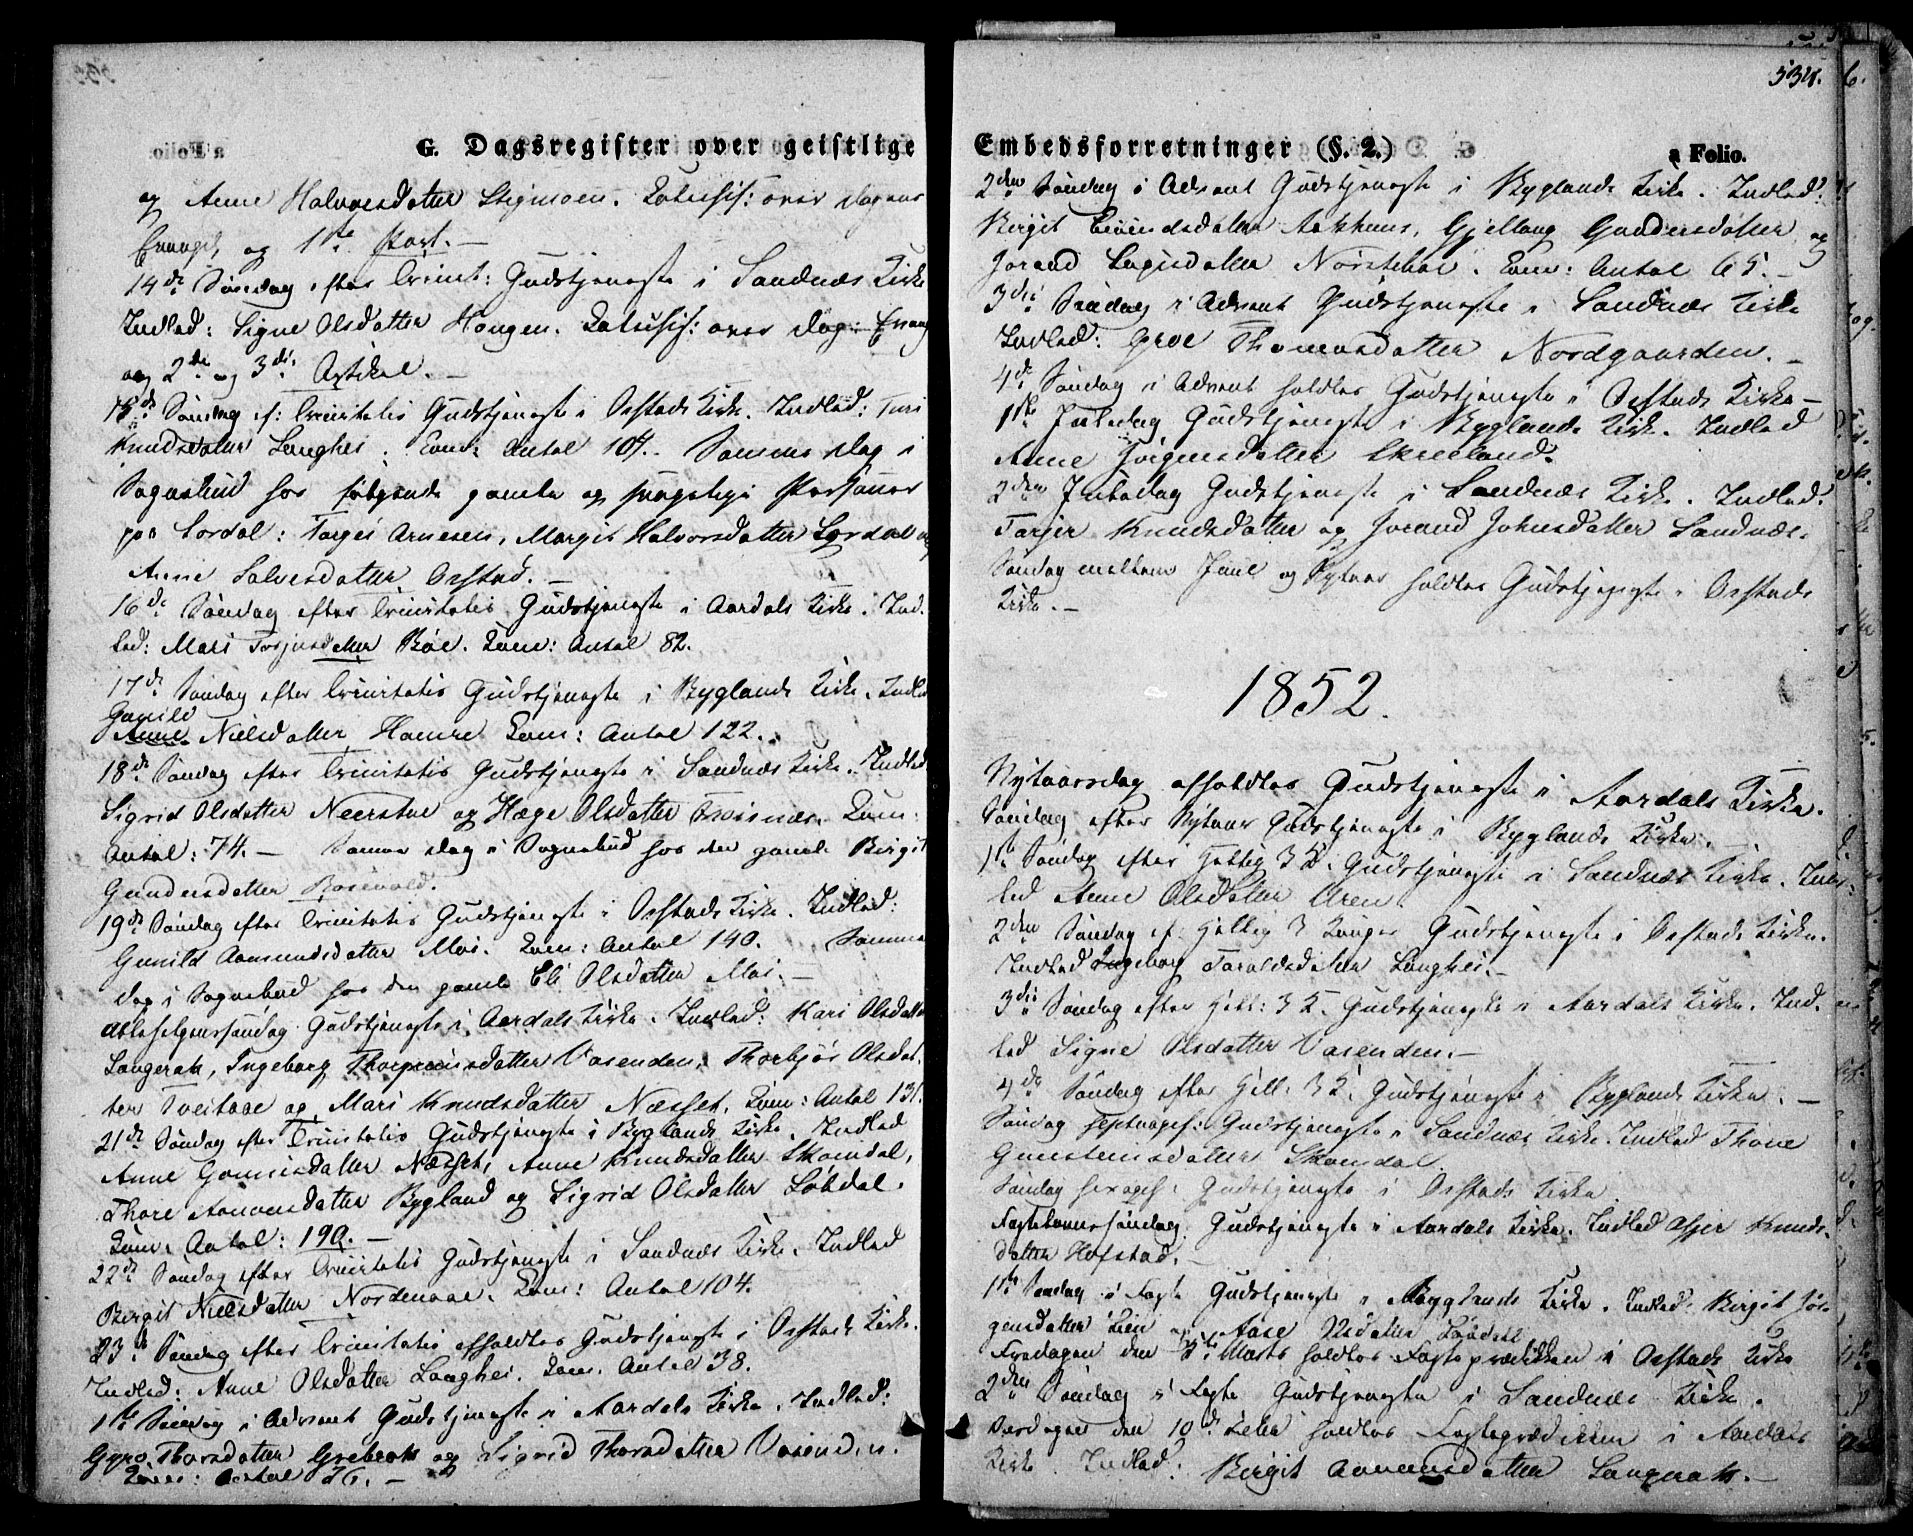 G. Dagsregister over geistlige
og Anne Halvorsdatter Stigmoen. Catechis: over Dagens
Evangel, og 1ste Part. —
14de Søndag efter Trinit: Gudstjeneste i Sandnæs Kirke
Indled: Signe Olsdatter Hougen. Catechis: over Dag: Evang
og 2de og 3die Artikel. —
15de Søndag ef: Trinitatis Gudstjeneste i Ostads Kirke. Indled: Turi
Knudsdatter Langhei. Com: Antal 104. Samme Dag i
Sognebud hos følgende gamle og svagelige Personer
paa Lordal: Torgei Arnesen, Margit Halvorsdatter Lordal og
Anne Salvesdatter Ostad. —
16de Søndag efter Trinitatis Gudstjeneste i Aardals Kirke. Ind-
led: Mari Torjusdatter Bøe. Com: Antal 82.
17de Søndag efter Trinitatis Gudstjeneste i Byglands Kirke. Indled
Gunild
Anne Nielsdatter Hamre Com: Antal 122.
18de Søndag efter Trinitatis Gudstjeneste i Sandnæs Kirke. Indled
Sigrid Olsdatter Neerstue og Hæge Olsdatter Com:
Antal: 74. — Samme Dag i Sognebud hos den gamle Birgit
Gundersdatter Rosevold.
19de Søndag efter Trinitatis Gudstjeneste i Ostads Kirke. Indled:
Gunild Aamundsdatter Moi. Com: Antal 140. Samme
Dag i Sognebud hos den gamle Eli Olsdatter Moi. —
Allehelgenssøndag Gudstjeneste i Aardals Kirke. Indled: Kari Olsdatter
Langerak, Ingeborg Vasenden, Thorbjør Olsdat-
ter Tveitaae og Mari Knudsdatter Næsset. Com: Antal 131.
21de Søndag efter Trinitatis Gudstjeneste i Byglands Kirke. Indled
Anne Gunnisdatter Næsset, Anne Knudsdatter Skomdal,
Thore Aanonsdatter Bygland og Sigrid Olsdatter Løbdal.
Com: Antal: 190. —
22de Søndag efter Trinitatis Gudstjeneste i Sandnæs Kirke. Indled
Birgit Nielsdatter Nordenaae. Com: Antal 104.
23de Søndag efter Trinitatis afholdtes Gudstjeneste i Ostads Kirke.
Indled: Anne Olsdatter Langhei. Com. Antal 38.
1ste Søndag i Advent Gudstjeneste i Aardals Kirke. Indled:
Gyro Thorsdatter Grebrok og Sigrid Thorsdatter Vasenden.
Com: Antal 76. —
534.
Embedsforretninger (§. 2.)
a Folio.
2den Søndag i Advent Gudstjeneste i Byglands Kirke. Indled:
Birgit Eivindsdatter Aakhuus, Gjellaug Gundersdatter og
Jorand Nørstebøe. Com: Antal 65. —
3die Søndag i Advent Gudstjeneste i Sandnæs Kirke
Indled: Groe Thomasdatter Nordgaarden. —
4de Søndag i Advent holdtes Gudstjeneste i Ostads Kirke —
1ste Juledag Gudstjeneste i Byglands Kirke. Indled
Anne Jørgensdatter Skreeland.
2den Juledag Gudstjeneste i Sandnæs Kirke. Indled:
Torjer Knudsdatter og Jorand Johnsdatter Sandnæs.
Søndag mellem Juul og Nytaar holdtes Gudstjeneste i Ostads
Kirke. —
1852.
Nytaarsdag afholdtes Gudstjeneste i Aardals Kirke.
Søndag efter Nytaar Gudstjeneste i Byglands Kirke. —
1ste Søndag efter Hellig 3 K. Gudstjeneste i Sandnæs Kirke. Ind-
led Anne Olsdatter Uren.
2den Søndag ef: Hellig 3 Konger Gudstjeneste i Ostads Kirke.
Indled Ingeborg Taraldsdatter Langhei. —
3die Søndag efter Hell: 3 K. Gudstjeneste i Aardals Kirke. Ind-
led Signe Olsdatter Vasenden. —
4de Søndag efter Hell: 3 K. Gudstjeneste i Byglands Kirke. —
Søndag Septuages: Gudstjeneste i Sandnæs Kirke. Indled Thone
Gunsteinsdatter Skomdal.
Søndag Sexages: Gudstjeneste i Ostads Kirke.
Fastelavnssøndag Gudstjeneste i Aardals Kirke. Indled Asjer Knuds-
datter Hofstad. —
1ste Søndag i Faste Gudstjeneste i Byglands Kirke. Indled: Birgit Jør-
gensdatter Lien og Aase Olsdatter
Fredagen den 5te Marts holdtes Fasteprædiken i Ostads Kirke
2den Søndag i Faste Gudstjeneste i Sandnæs Kirke.
Onsdagen den 10de holdtes Fasteprædiken i Aardals
Kirke. Indled: Birgit Aanonsdatter Langerak. —